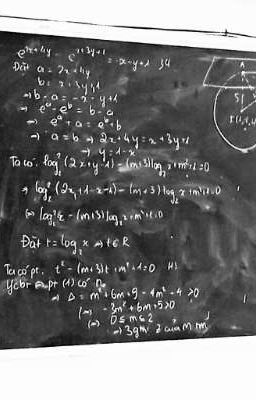 e^{2x+4y} - e^{x+3y+1} = -x-y+1
Đặt a = 2x+4y
b = x+3y+1
⇒ b-a = -x-y+1
⇒ e^a - e^b = b-a
⇒ e^a + a = e^b + b
⇒ a = b ⇒ 2x+4y = x+3y+1
⇒ y = 1-x
Ta có: log₂²(2x+y-1) - (m+3)log₂x + m²+1=0
⇒ log₂²(2x+1-x-1) - (m+3)log₂x + m²+1=0
⇔ log₂²x - (m+3)log₂x + m²+1=0
Đặt t = log₂x ⇒ t∈R
Ta có pt. t² - (m+3)t + m²+1=0
pt (1) có
⇒ Δ = m²+6m+9-4m²-4 ≥0
⇔ -3m²+6m+5≥0
⇔ 0≤m≤2
⇒ 3 của m